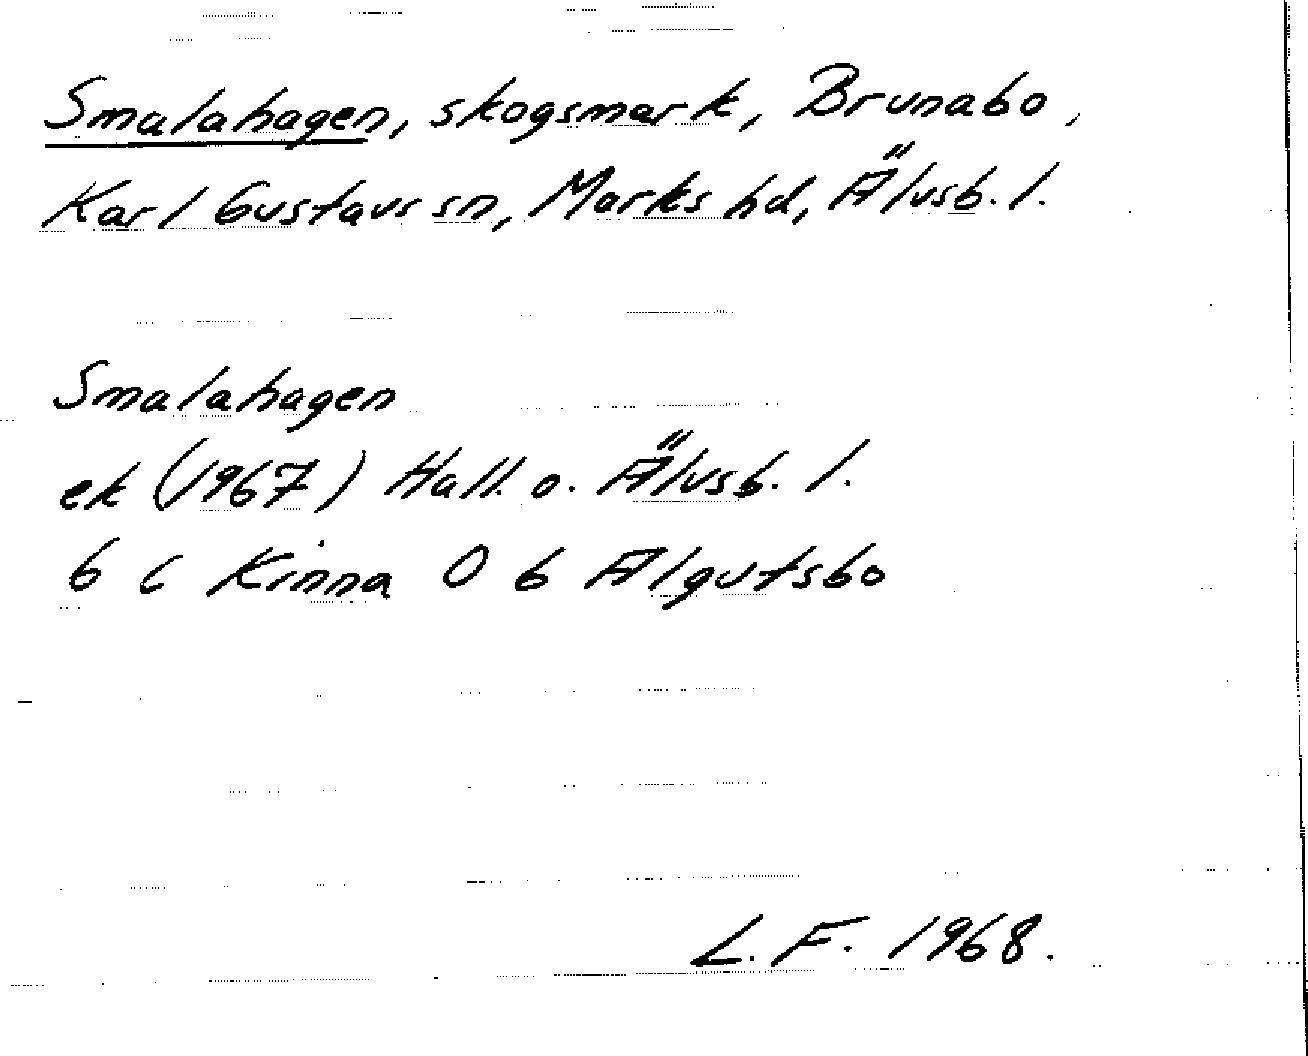 Smalahagen, skogsmark, Brunabo,
Karl Gustavs sn, Marks hd, Älvsb. l.
Smalahagen
ek (1967) Hall. o. Älvsb. l.
6 C Kinna 0 b Algutsbo
L. F. 1968.